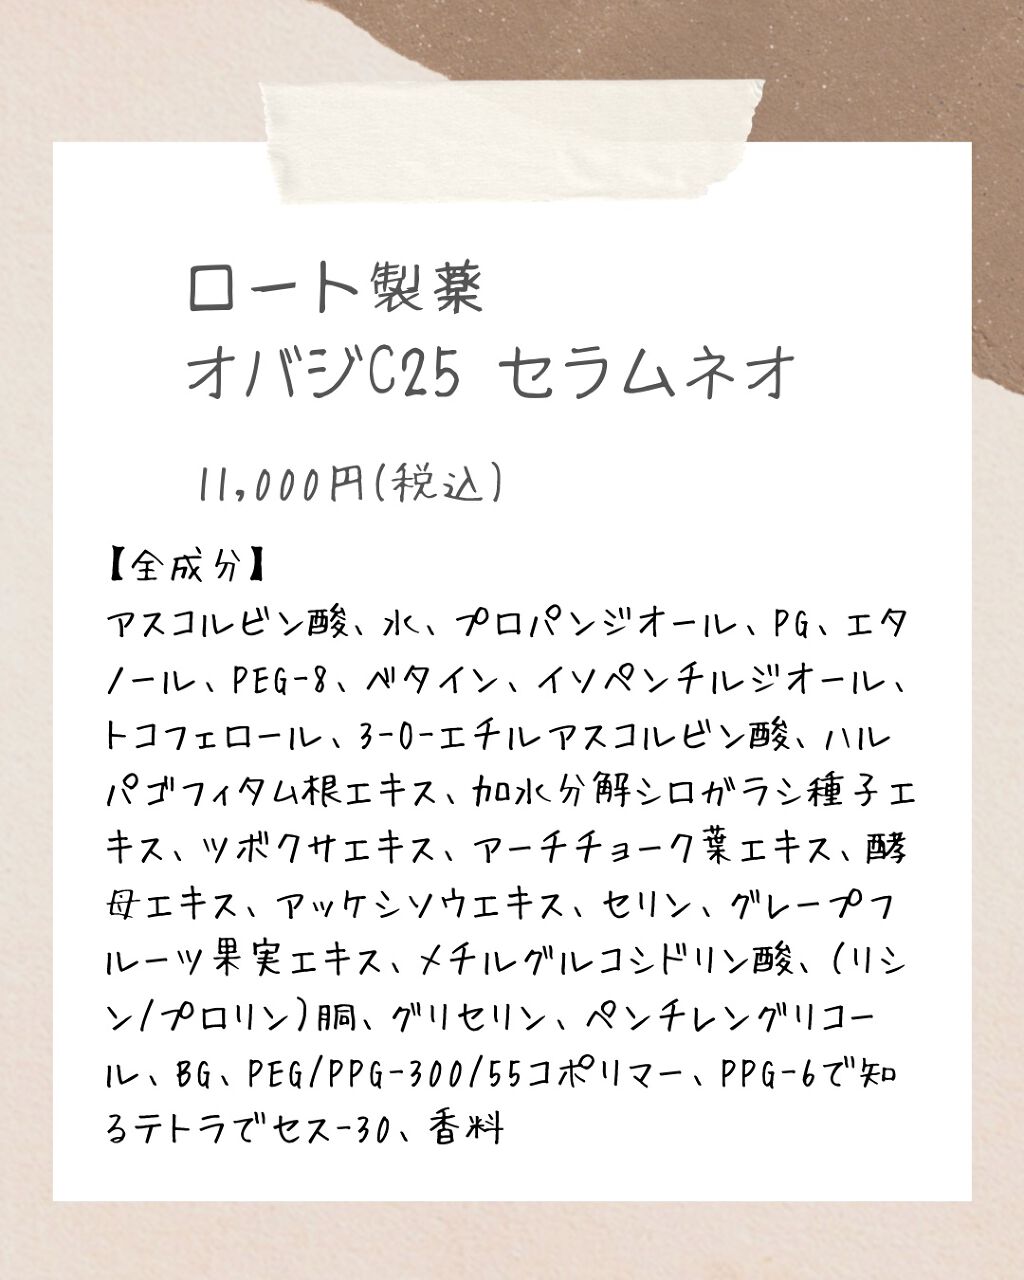 ロート製薬
オバジC25 セラムネオ
11,000円(税込)
【全成分】
アスコルビン酸、水、プロパンジオール、PG、エタ
ノール、PEG-8、ベタイン、イソペンチルジオール、
トコフェロール、3-O-エチルアスコルビン酸、ハル
パゴフィタム根エキス、加水分解シロガラシ種子エ
キス、ツボクサエキス、アーチチョーク葉エキス、酵
母エキス、アッケシソウエキス、セリン、グレープフ
ルーツ果実エキス、メチルグルコシドリン酸、(リシ
ン/プロリン)胴、グリセリン、ペンチレングリコー
ル、BG、PEG/PPG-300/55コポリマー、PPG-6で知
るテトラでセス-30、香料